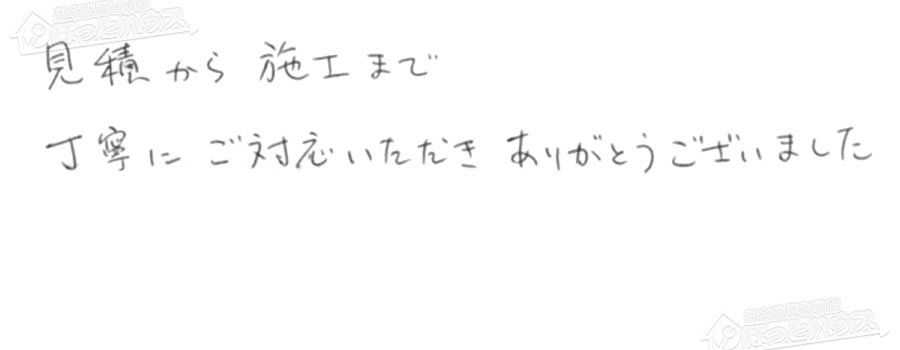 住宅設備専門店
ほっとハウス
見積から 施工まで
丁寧に ご対応いただき ありがとうございました
ほっとハウス